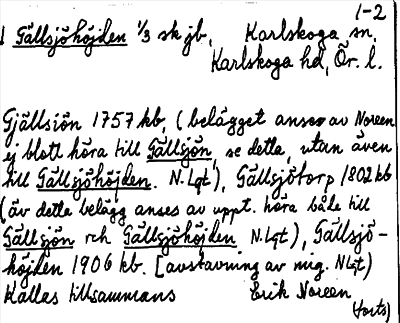 1-2
1 Gällsjöhöjden 1/3 sk jb, Karlskoga sn,
Karlskoga hd, Ör. l.
Gjällsiön 1757 kb, (belägget anses av Noreen
ej blott höra till Gällsjön, se detta, utan även
till Gällsjöhöjden. N. Lgt), Gällsjötorp 1802 kb
(äv detta belägg anses av uppt. höra både till
Gällsjön och Gällsjöhöjden N. Lgt), Gällsjö-
höjden 1906 kb. [avstavning av mig. N Lgt)
Kallas tillsammans Erik Noreen
(forts)